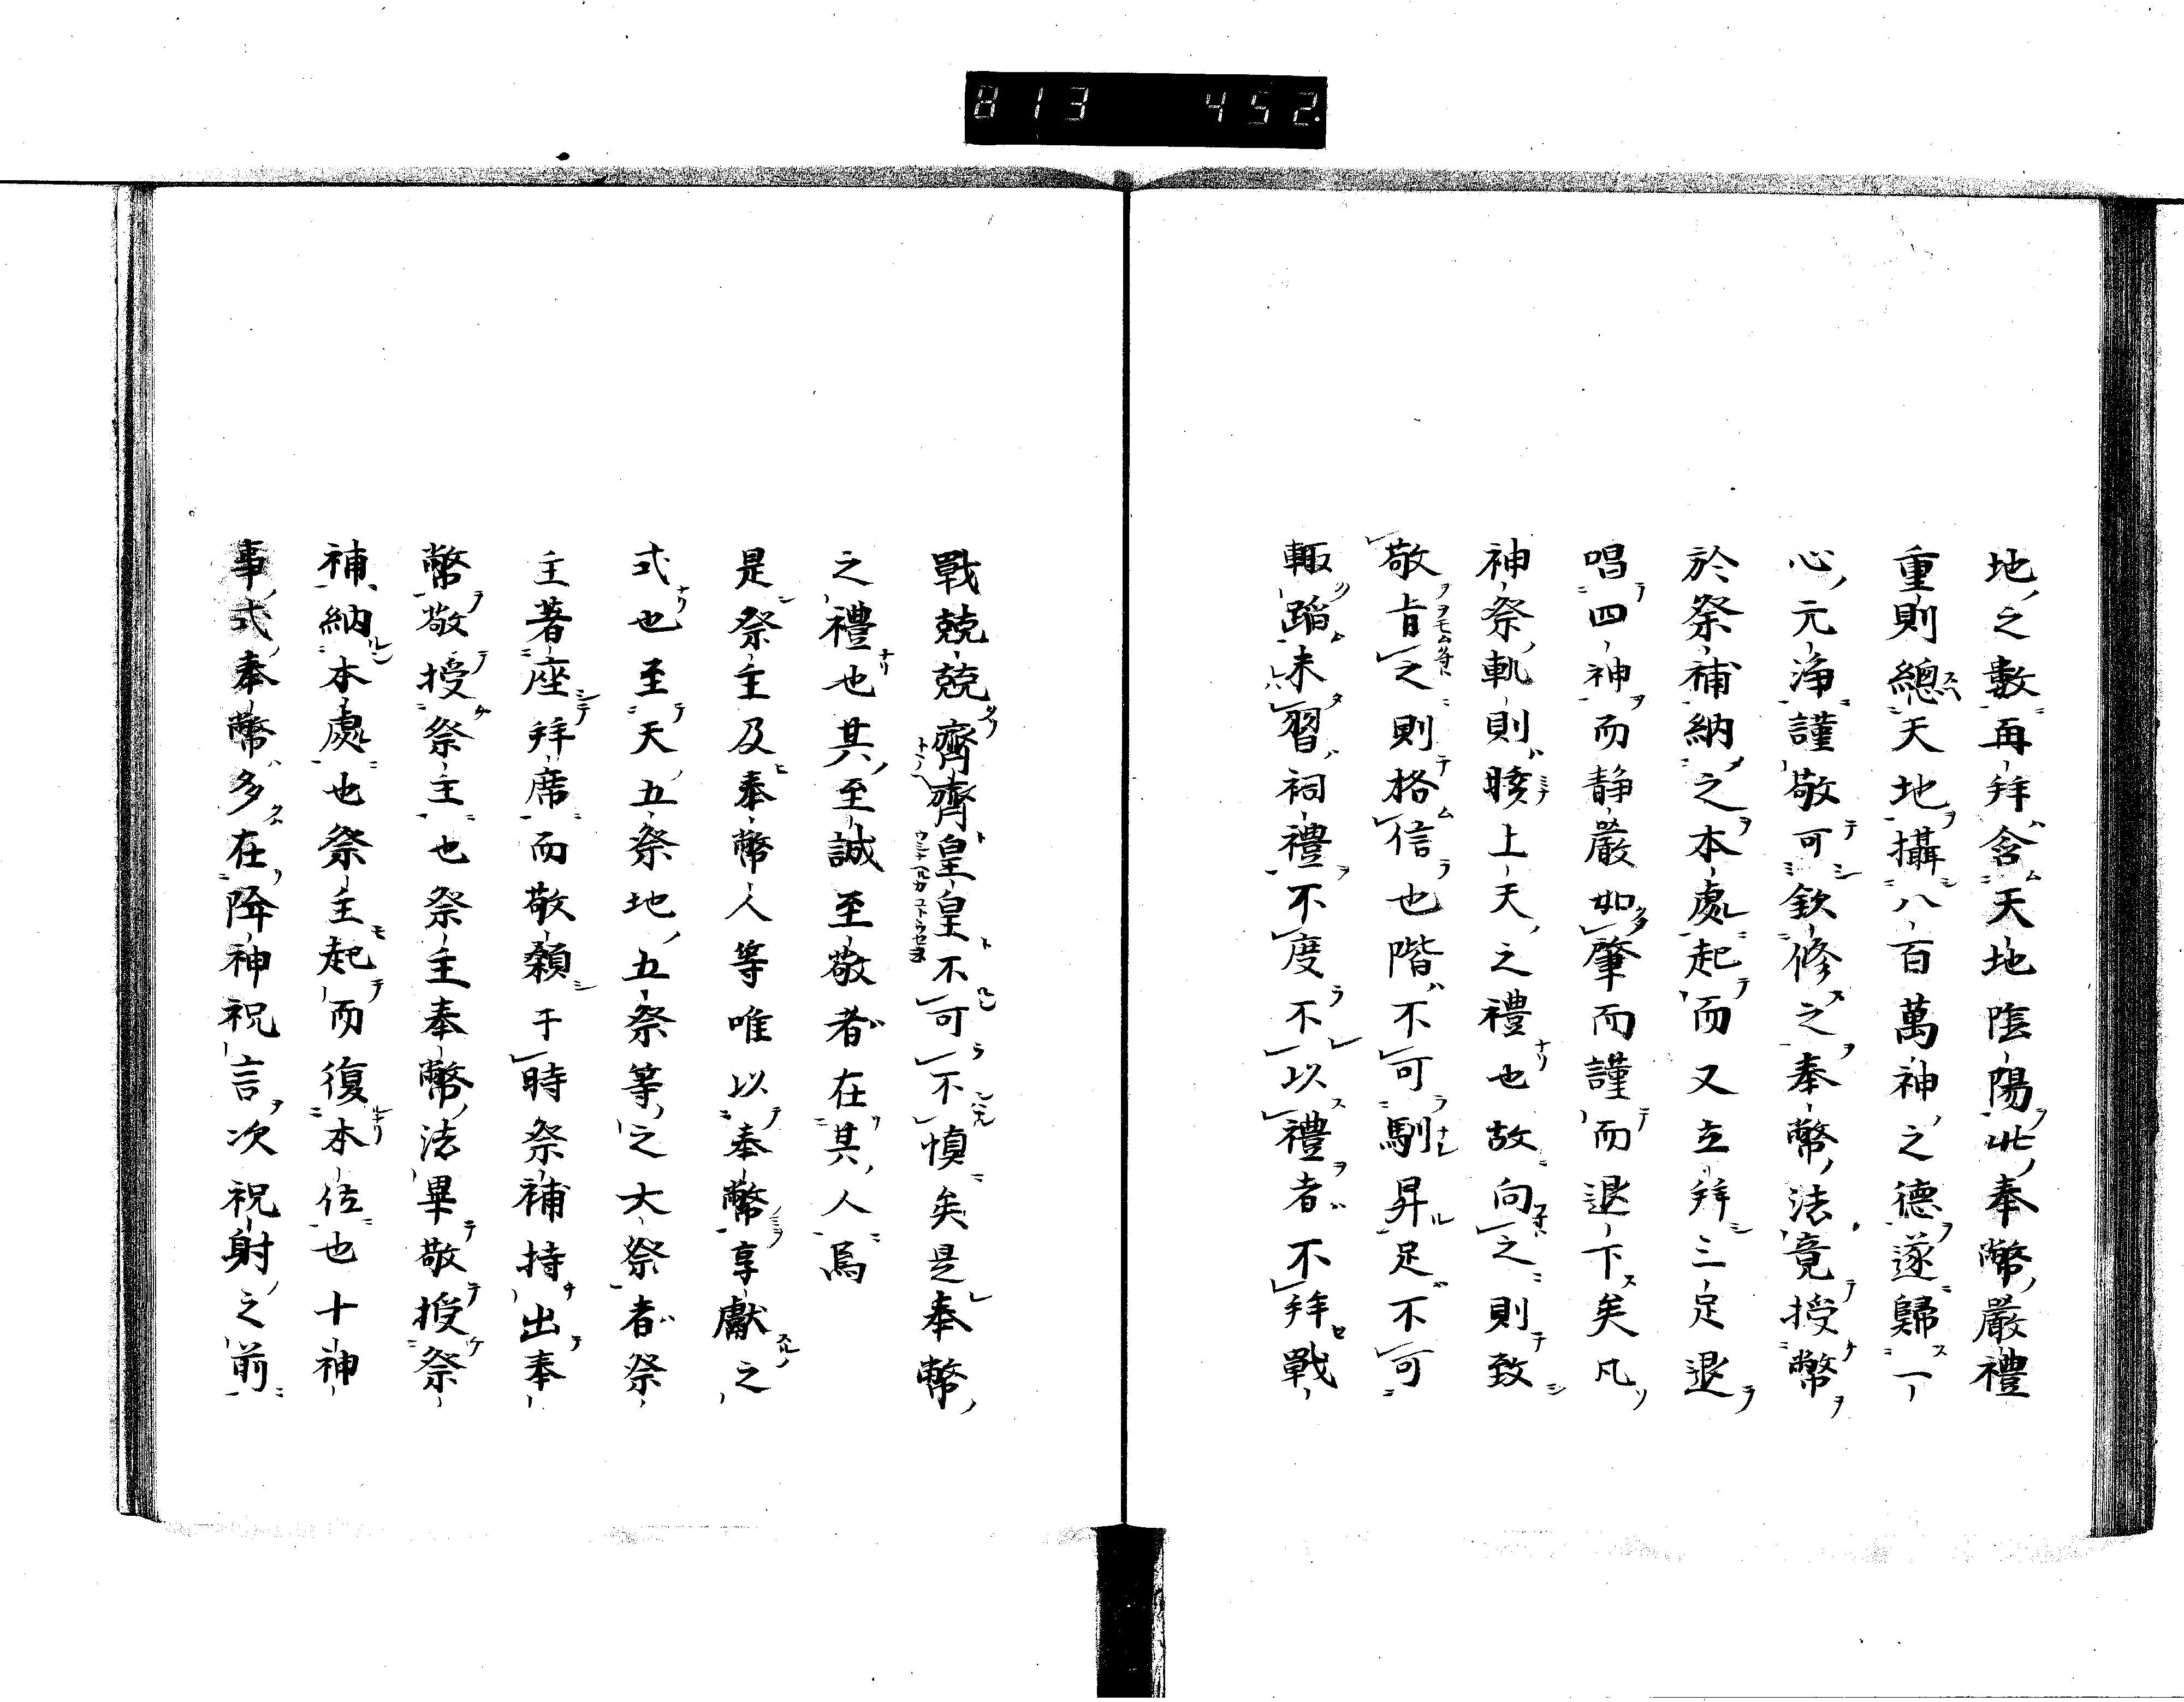 813 452.
地之數再拜含天地陰陽此奉幣嚴禮
重則總天地攝八百萬神之德遂歸一
心元淨謹敬可欽修之奉幣法竟授幣
於祭補納之本處起而又立拜三足退
唱四神而静嚴如肇而謹而退下矣凡
神祭軌則晐上天之禮也故向之則致
敬肯之則格信也階不可馴昇足不可
輙蹈未習祠禮不度不以禮者不拜戰
戰兢兢齊齊皇皇不可不慎矣是奉幣
之禮也其至誠至敬者在其人焉
是祭主及奉幣人等唯以奉幣享獻之
式也至天五祭地五祭等之大祭者祭
主著座拜席而敬顙于時祭補持出奉
幣敬授祭主也祭主奉幣法畢敬授祭
補納本處也祭主起而復本位也十神
事式奉幣多在降神祝言次祝射之前